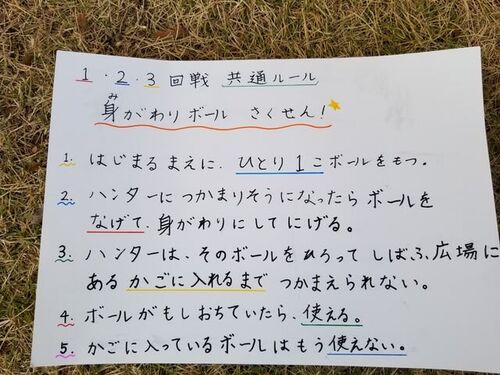 1・2・3回戦 共通ルール
身がわりボール さくせん!
み
1. はじまるまえに、ひとり1こボールをもつ。
2. ハンターにつかまりそうになったらボールを
なげて、身がわりにしてにげる。
3. ハンターは、そのボールをひろってしばふ広場に
あるかごに入れるまでつかまえられない。
4. ボールがもしおちていたら、使える。
5. かごに入っているボールはもう使えない。